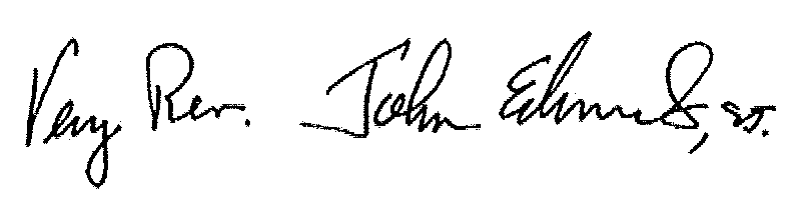 Very Rev. John Edwards, S.J.